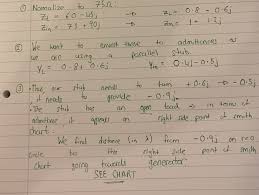 ① Normalize to 75Ω:
ZL = 60 - 45j → zL = 0.8 - 0.6j
Zin = 75 + 90j → zin = 1 + 1.2j
② We want to invert these to admittances as
we are using a parallel stub.
YL = 0.8 + 0.6j Yin = 0.4 - 0.5j
③ • Thus our stub needs to turn +0.6j → -0.5j
it needs to provide -0.9j
• The stub has an open load → in terms of
admittance it appears on right side point of smith
chart.
We find distance (in λ) from -0.9j on r=0
circle to the right side point of smith
chart going towards generator
SEE CHART